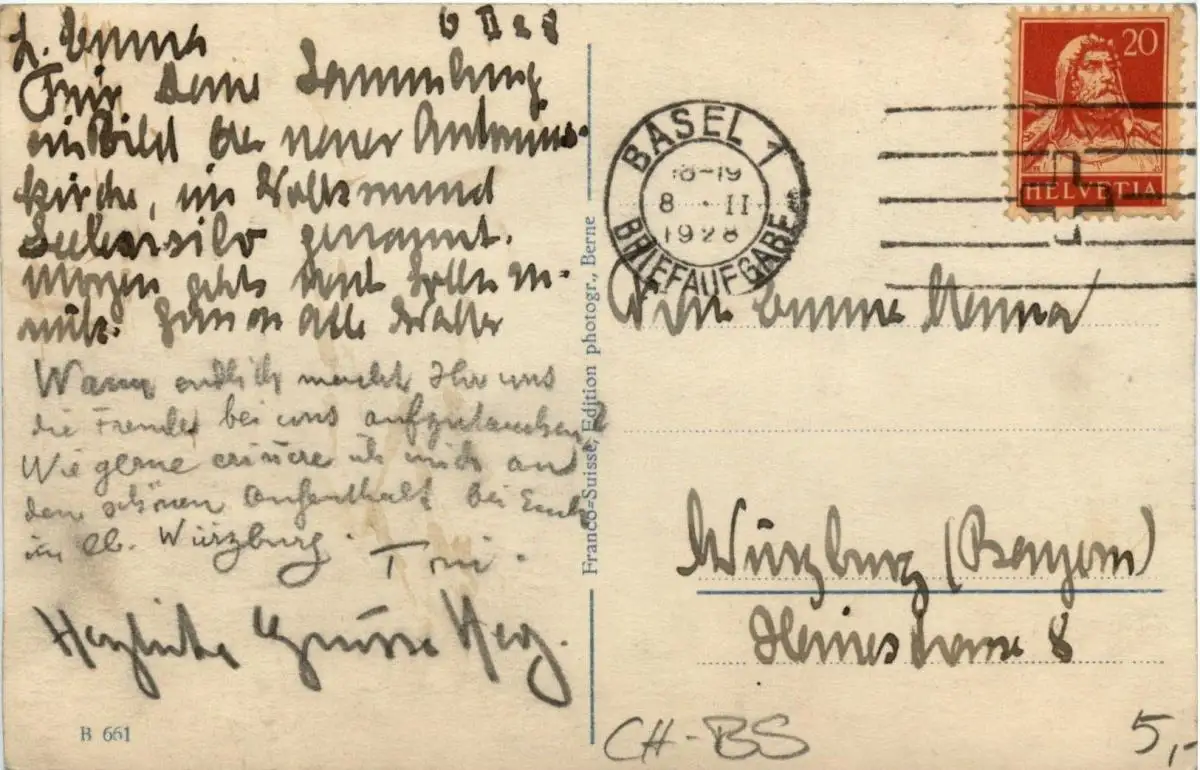 L. Emma 6 II 28
Für Deine Sammlung
ein Bild der neuen Antonius-
kirche, im Volksmund
Seelensilo genannt.
Morgen gehts
Alle
Wann endlich macht Ihr uns
die Freude bei uns aufzutauchen?
Wie gerne erinnre ich mich an
den schönen Aufenthalt bei Euch
im lb. Würzburg.
Trui.
Herzliche Grüsse Herz.
B 661
Franco-Suisse, Edition photogr., Berne
BASEL 1
18-19
8 · II
1928
BRIEFAUFGABE
20
HELVETIA
Emma
Würzburg (Bayern)
Heinestrasse 8
CH-BS
5,-